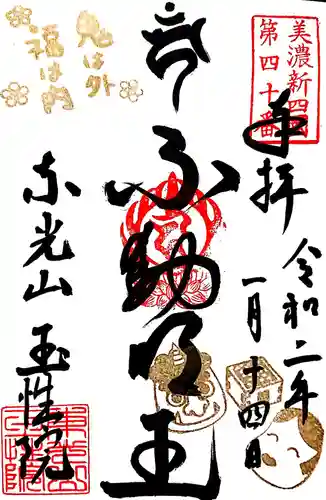 美濃新四国
第四十番
奉拝
令和二年
一月十四日
不動明王
東光山
玉性院
鬼は外
福は内